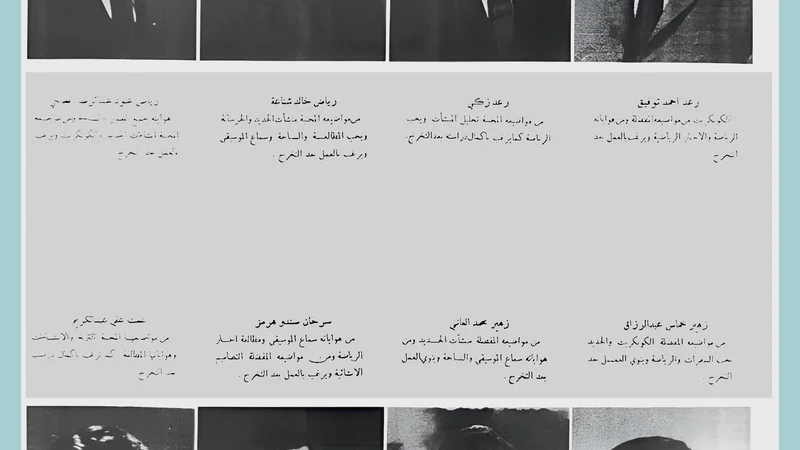 رعد احمد توفيق
الكونكريت من مواضيعه المفضلة ومن هواياته
الرياضة والاسفار الرياضية ويرغب بالعمل بعد
التخرج
رعد زكي
من مواضيعه المحببة تحليل المنشآت ويحب
الرياضة كما يرغب باكمال دراسته بعد التخرج.
رياض خالد شناعة
من مواضيعه المحببة منشآت الحديد والخرسانة
ويحب المطالعة والسباحة وسماع الموسيقى
ويرغب بالعمل بعد التخرج .
رياض
هواياته جمع
المحببة انشاءات والكونكريت ويرغب
بالعمل بعد التخرج
زهير خماس عبدالرزاق
من مواضيعه المفضلة الكونكريت والحديد
يحب السفرات والرياضة وينوي العمل بعد
التخرج .
زهير محمد العاني
من مواضيعه المفضلة منشآت الحديد ومن
هواياته سماع الموسيقى والسباحة وينوي العمل
بعد التخرج .
سرحان سندو هرمز
من هواياته سماع الموسيقى ومطالعة اخبار
الرياضة ومن مواضيعه المفضلة التصاميم
الانشائية ويرغب بالعمل بعد التخرج .
علي عبدالكريم
من مواضيعها المحببة
وهواياتها المطالعة كما ترغب باكمال
بعد التخرج